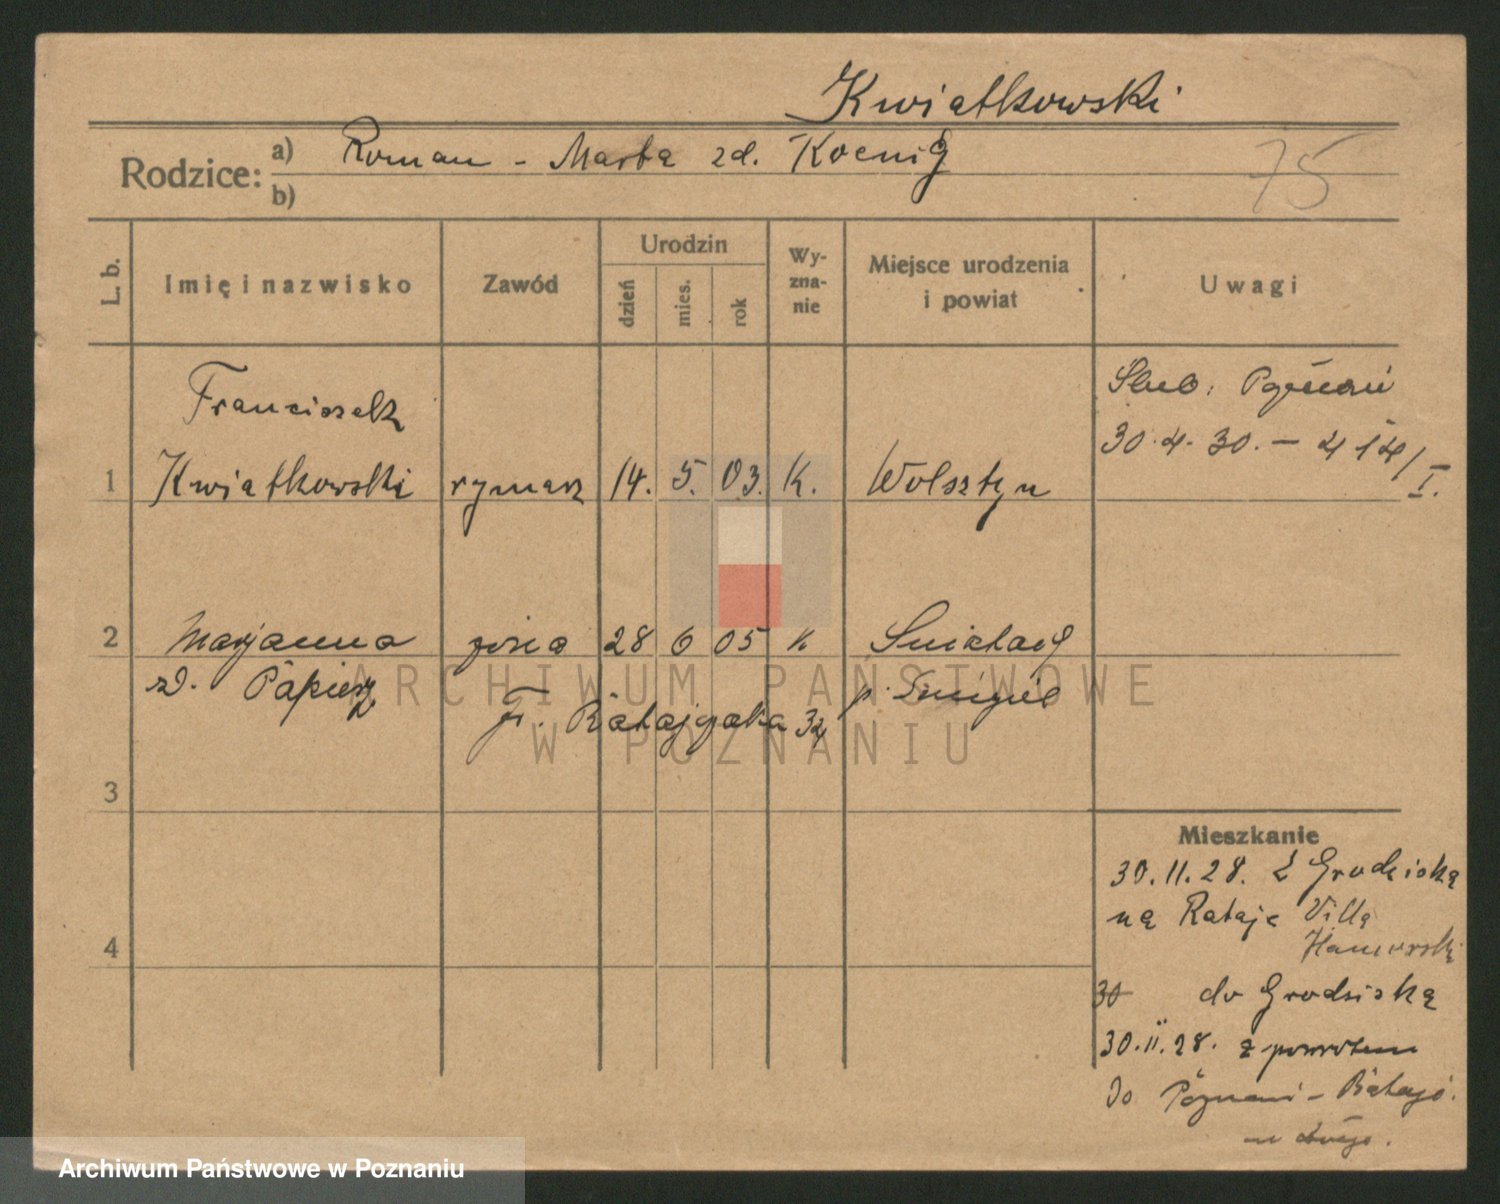 Kwiatkowski
Rodzice: a) Roman - Marta zd. Koenig
b)
75
L. b. Imię i nazwisko Zawód Urodzin dzień mies. rok Wy-zna-nie Miejsce urodzenia i powiat Uwagi
Franciszek
Ślub: Poznań
30.4.30. - 414/I.
1 Kwiatkowski rymarz 14. 5. 03. K. Wolsztyn
2 Marjanna żona 28 6 05 k
zd. Papież p. Śmigiel
Fr. Ratajczaka 34
ARCHIWUM PAŃSTWOWE
W POZNANIU
3
Mieszkanie
30.11.28. z Grodziska
na Rataje Villa
4
30 do Grodziska
30.11.28. z powrotem
do Poznań - Rataje.
Archiwum Państwowe w Poznaniu